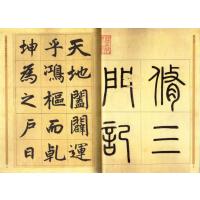 脩三
門記
天地闔闢運
乎鴻樞而乹
坤為之戶日